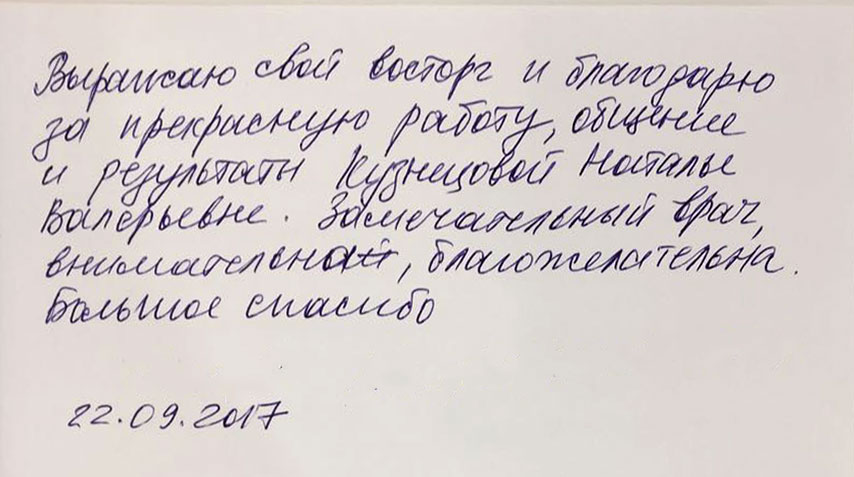 Выражаю свой восторг и благодарю
за прекрасную работу, общение
и результаты Кузнецовой Наталье
Валерьевне. Замечательный врач,
внимательна, благожелательна.
Большое спасибо
22.09.2017